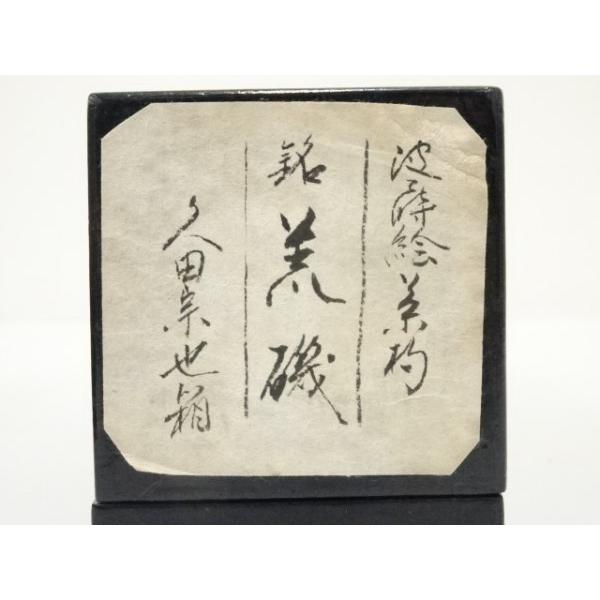 波蒔絵茶杓
銘 荒磯
久田宗也箱